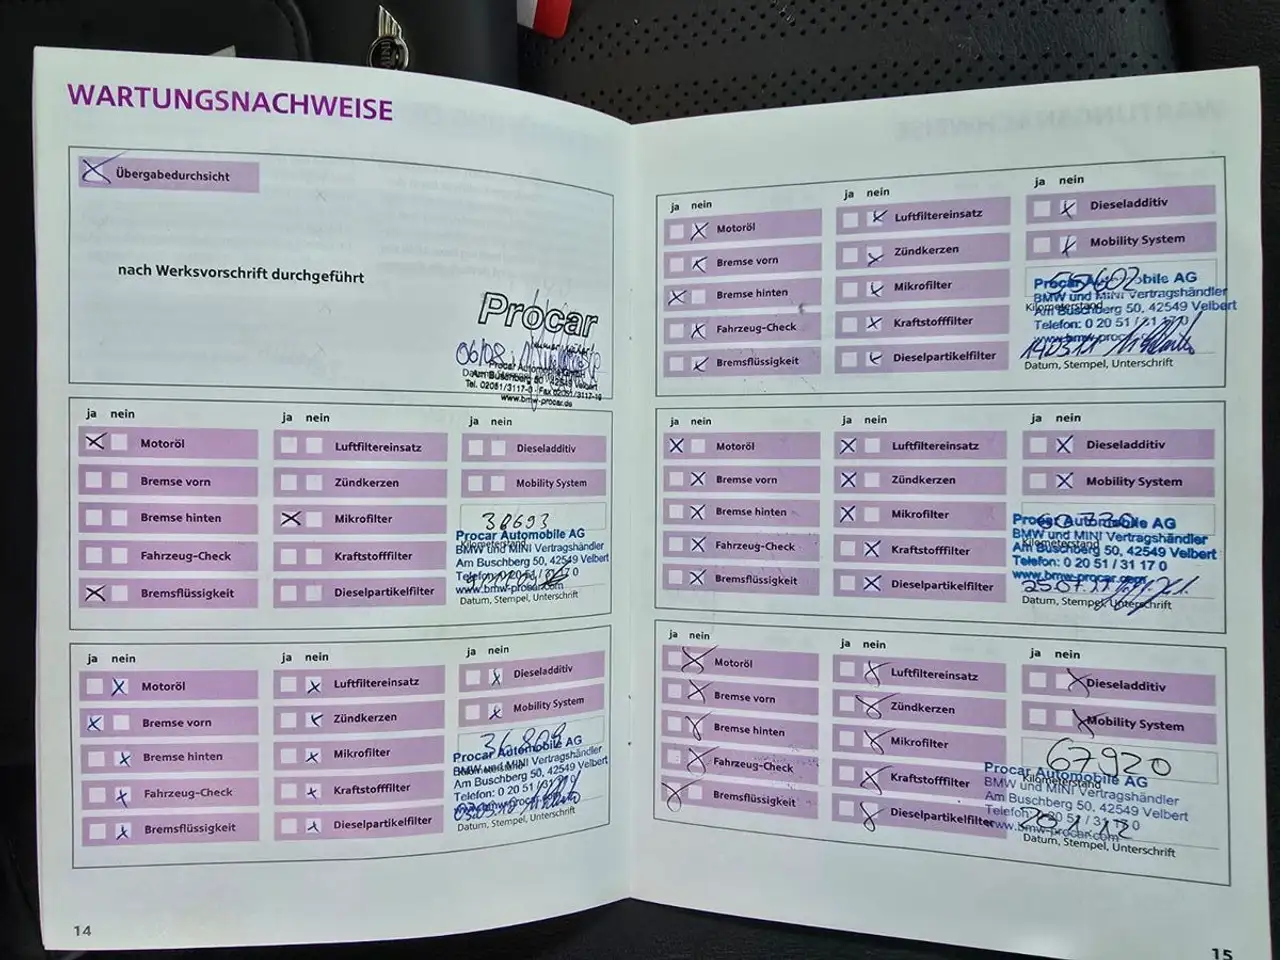 WARTUNGSNACHWEISE
Übergabedurchsicht
nach Werksvorschrift durchgeführt
Procar
06/08
Procar Automobile
Am Buschberg 50 42549 Velbert
Tel. 02051/3117-0 Fax 02051/3117-19
www.bmw-procar.de
ja nein
Motoröl
Bremse vorn
Bremse hinten
Fahrzeug-Check
Bremsflüssigkeit
ja nein
Luftfiltereinsatz
Zündkerzen
Mikrofilter
Kraftstofffilter
Dieselpartikelfilter
ja nein
Dieseladditiv
Mobility System
38693
Procar Automobile AG
BMW und MINI Vertragshändler
Am Buschberg 50, 42549 Velbert
Telefon: 0 20 51 / 31 17 0
www.bmw-procar.com
Datum, Stempel, Unterschrift
ja nein
Motoröl
Bremse vorn
Bremse hinten
Fahrzeug-Check
Bremsflüssigkeit
ja nein
Luftfiltereinsatz
Zündkerzen
Mikrofilter
Kraftstofffilter
Dieselpartikelfilter
ja nein
Dieseladditiv
Mobility System
Procar Automobile AG
BMW und MINI Vertragshändler
Am Buschberg 50, 42549 Velbert
Telefon: 0 20 51 / 31 17 0
Datum, Stempel, Unterschrift
14
ja nein
Motoröl
Bremse vorn
Bremse hinten
Fahrzeug-Check
Bremsflüssigkeit
ja nein
Luftfiltereinsatz
Zündkerzen
Mikrofilter
Kraftstofffilter
Dieselpartikelfilter
ja nein
Dieseladditiv
Mobility System
Procar Automobile AG
BMW und MINI Vertragshändler
Kilometerstand
Am Buschberg 50, 42549 Velbert
Telefon: 0 20 51 / 31 17 0
140311
Datum, Stempel, Unterschrift
ja nein
Motoröl
Bremse vorn
Bremse hinten
Fahrzeug-Check
Bremsflüssigkeit
ja nein
Luftfiltereinsatz
Zündkerzen
Mikrofilter
Kraftstofffilter
Dieselpartikelfilter
ja nein
Dieseladditiv
Mobility System
Procar Automobile AG
BMW und MINI Vertragshändler
Kilometerstand
Am Buschberg 50, 42549 Velbert
Telefon: 0 20 51 / 31 17 0
www.bmw-procar.com
25.07.11
Datum, Stempel, Unterschrift
ja nein
Motoröl
Bremse vorn
Bremse hinten
Fahrzeug-Check
Bremsflüssigkeit
ja nein
Luftfiltereinsatz
Zündkerzen
Mikrofilter
Kraftstofffilter
Dieselpartikelfilter
ja nein
Dieseladditiv
Mobility System
67920
Procar Automobile AG
Kilometerstand
BMW und MINI Vertragshändler
Am Buschberg 50, 42549 Velbert
Telefon: 0 20 51 / 31 17 0
www.bmw-procar.com
Datum, Stempel, Unterschrift
15
MINI